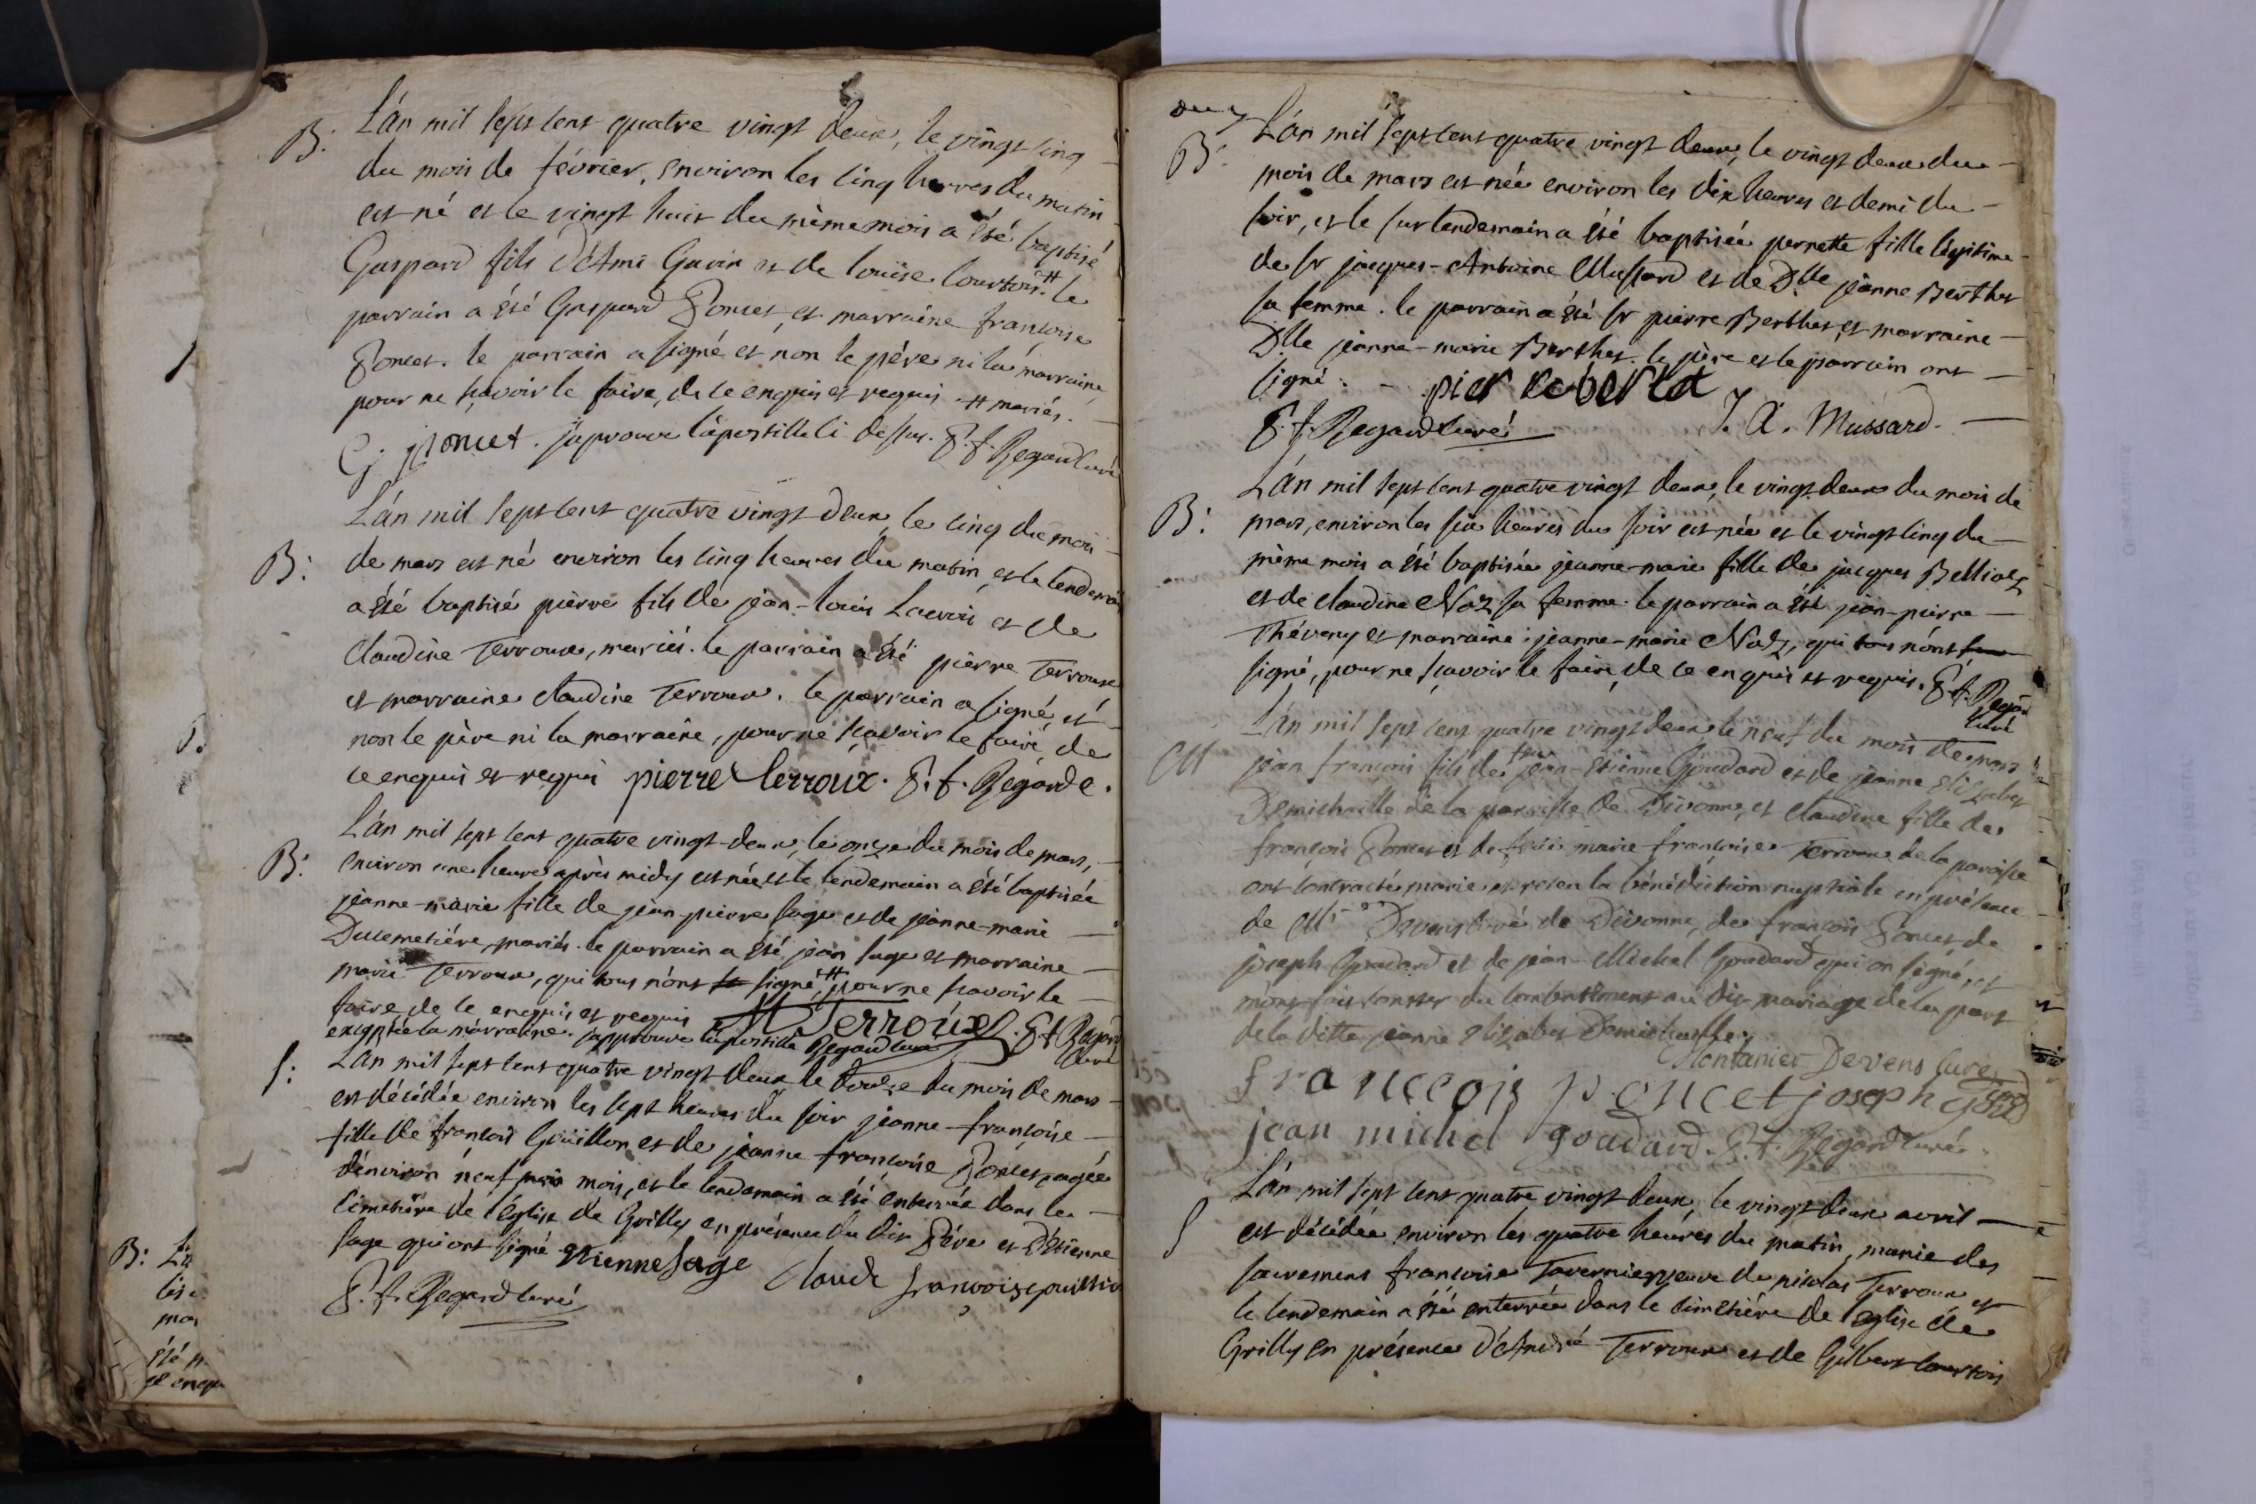 B: L'án mil sept cent quatre vingt deux, le vingt cinq
du mois de février, environ les cinq heures du matin
est né et le vingt huit du même mois a été baptisé
Gaspard fils d'Ami Gavin et de louïse Courtois ++ le
parrain a été Gaspard Poncet et marraine françoise
Poncet. le parrain a signé et non le père ni la marraine
pour ne sçavoir le faire, de ce enquis et requis ++ mariés.
G: poncet. j'aprouve l'apostille ci dessus. P. f. Regard curé
B: L'án mil sept cent quatre vingt deux, le cinq du mois
de mars est né environ les cinq heures du matin, et le lendemain
a été baptisé pièrre fils de jean-louis Lacroix et de
Claudine Terroux, mariés. le parrain a été pièrre Terroux
et marraine claudine Terroux. le parrain a signé, et
non le père ni la marraine, pour ne sçavoir le faire de
ce enquis et requis pierre terroux. P. f. Regard c.
B: L'án mil sept cent quatre vingt-deux, le onze du mois de mars,
environ une heure après midy est née et le lendemain a été baptisée
jeanne-marie fille de jean-pierre sage et de jeanne-marie
Ducimetiére, mariés. le parrain a été jean sage et marraine
marie Terroux, qui tous n'ont signé, ++ pour ne scavoir le
faire de ce enquis et requis M Terroux. P. f. Regard
exceptée la marraine. j'approuve l'apostille Regard curé curé
S: L'an mil sept cent quatre vingt deux le douze du mois de mars
est décédée environ les sept heures du soir jeanne-françoise
fille de françois Goüillon et de jeanne françoise Poncet, agée
d'environ neuf mois, et le lendemain a été enterrée dans le
cimetiére de l'église de Grilly en présence du dit Père et d'Etienne
sage qui ont signé etienne sage
Claude francois
P. f. Regard curé
B: L'án mil sept cent quatre vingt deux, le vingt deux du
mois de mars est née environ les dix heures et demi du
soir, et le surlendemain a été baptisée pernette fille légitime
de Sr jacques-Antoine Mussard et de Dlle jeanne Berthet
sa femme. le parrain a été Sr pierre Berthet, et marraine
Dlle jeanne-marie Berthet. le père et le parrain ont
signé.
P. f. Regard curé
J. A. Mussard.
B: L'án mil sept cent quatre vingt deux, le vingt deux du mois de
mars, environ les six heures du soir est née et le vingt cinq du
même mois a été baptisée jeanne-marie fille de jacques
et de claudine Naz sa femme. le parrain a été jean-pierre
Théveny et marraine jeanne-marie Naz, qui tous n'ont
signé, pour ne sçavoir le faire, de ce enquis et requis. P. f. Regard
curé
M L'án mil sept cent quatre vingt deux le neuf du mois de mars
jean françois fils de feu jean-Etienne Goudard et de jeanne Elizabet
Demichaille de la paroisse de Divonne, et claudine fille de
françois Poncet et de marie françoise Terroux de la paroisse
ont contracté mariage et reçu la bénédiction nuptiale en présence
de Mr Devens Curé de Divonne, de françois Poncet de
joseph Goudard et de jean-Michel Goudard qui on signé, et
m'ont fait conster du consentement au dit mariage de la part
de la ditte jeanne Elizabet Demichaille.
Montanier Devens curé
franceois poncet joseph
jean michel goudard. P. f. Regard curé.
S L'án mil sept cent quatre vingt deux, le vingt deux avril
est décédée environ les quatre heures du matin, munie des
sacremens françoise Tavernier veuve de nicolas Terroux et
le lendemain a été enterrée dans le cimetiére de l'église de
Grilly en présence d'André Terroux et de Gilbert Courtois